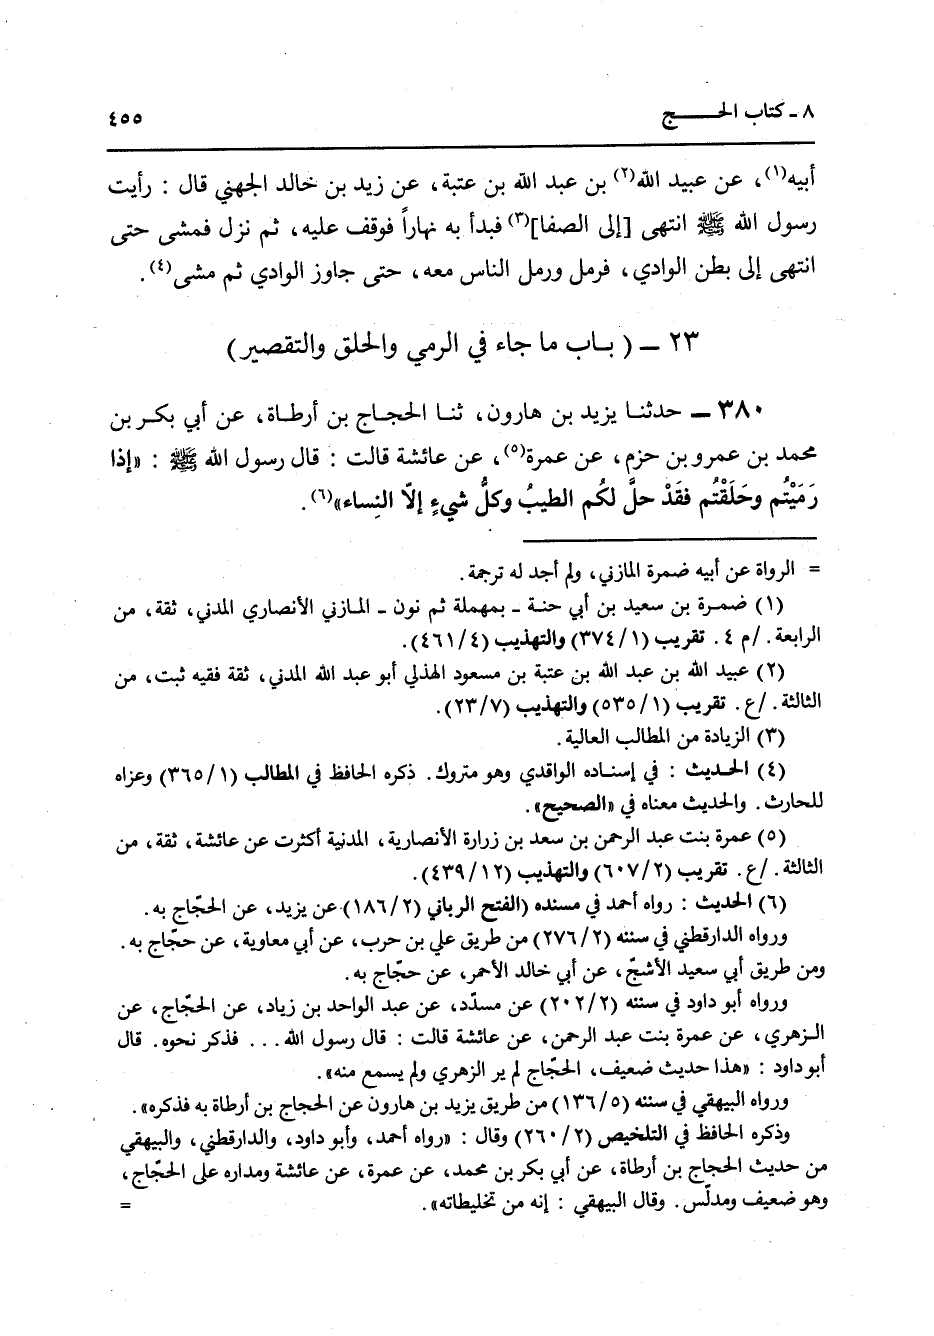 ٨ ـ كتاب الحـــــج
٤٥٥
أبيه(١)، عن عبيد الله(٢) بن عبد الله بن عتبة، عن زيد بن خالد الجهني قال : رأيت
رسول الله ﷺ انتهى [إلى الصفا](٣) فبدأ به نهاراً فوقف عليه، ثم نزل فمشى حتى
انتهى إلى بطن الوادي، فرمل ورمل الناس معه، حتى جاوز الوادي ثم مشى(٤).
٢٣ ــ ( بـاب ما جاء في الرمي والحلق والتقصير)
٣٨٠ ــ حدثنـا يزيد بن هارون، ثنـا الحجـاج بن أرطـاة، عن أبي بكـر بن
محمد بن عمرو بن حزم، عن عمرة(٥)، عن عائشة قالت : قال رسول الله ﷺ : «إذا
رَمَيْتُم وحَلَقْتُم فقَدْ حلَّ لكُم الطيبُ وكلُّ شيءٍ إلاّ النِساء»(٦).
= الرواة عن أبيه ضمرة المازني، ولم أجد له ترجمة.
(١) ضمـرة بن سعيد بن أبي حنـة ـ بمهملة ثم نون ـ المـازني الأنصاري المدني، ثقة، من
الرابعة. /م ٤. تقريب (٣٧٤/١) والتهذيب (٤٦١/٤).
(٢) عبيد الله بن عبد الله بن عتبة بن مسعود الهذلي أبو عبد الله المدني، ثقة فقيه ثبت، من
الثالثة. /ع. تقريب (٥٣٥/١) والتهذيب (٢٣/٧).
(٣) الزيادة من المطالب العالية.
(٤) الحـديث : في إسنـاده الواقدي وهو متروك. ذكره الحافظ في المطالب (٣٦٥/١) وعزاه
للحارث. والحديث معناه في «الصحيح».
(٥) عمرة بنت عبد الرحمن بن سعد بن زرارة الأنصارية، المدنية أكثرت عن عائشة، ثقة، من
الثالثة. /ع. تقريب (٦٠٧/٢) والتهذيب (٤٣٩/١٢).
(٦) الحديث : رواه أحمد في مسنده (الفتح الرباني (١٨٦/٢) عن يزيد، عن الحجّاج به.
ورواه الدارقطني في سننه (٢٧٦/٢) من طريق علي بن حرب، عن أبي معاوية، عن حجّاج به.
ومن طريق أبي سعيد الأشجّ، عن أبي خالد الأحمر، عن حجّاج به.
ورواه أبو داود في سننه (٢٠٢/٢) عن مسدّد، عن عبد الواحد بن زياد، عن الحجّاج، عن
الـزهري، عن عمرة بنت عبد الرحمن، عن عائشة قالت : قال رسول الله... فذكر نحوه. قال
أبو داود : «هذا حديث ضعيف، الحجّاج لم ير الزهري ولم يسمع منه».
ورواه البيهقي في سننه (١٣٦/٥) من طريق يزيد بن هارون عن الحجاج بن أرطاة به فذكره».
وذكره الحافظ في التلخيص (٢٦٠/٢) وقال : «رواه أحمد، وأبو داود، والدارقطني، والبيهقي
من حديث الحجاج بن أرطاة، عن أبي بكر بن محمد، عن عمرة، عن عائشة ومداره على الحجّاج،
وهو ضعيف ومدلّس. وقال البيهقي : إنه من تخليطاته». =